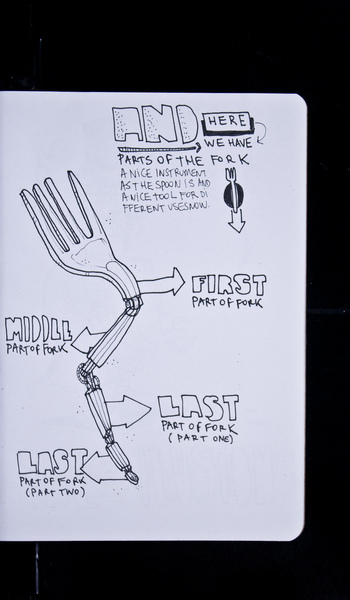 AND HERE
WE HAVE
PARTS OF THE FORK
A NICE INSTRUMENT
AS THE SPOON IS AND
A NICE TOOL FOR DI
FFERENT USESNOW.
FIRST
PART OF FORK
MIDDLE
PART OF FORK
LAST
PART OF FORK
(PART ONE)
LAST
PART OF FORK
(PART TWO)